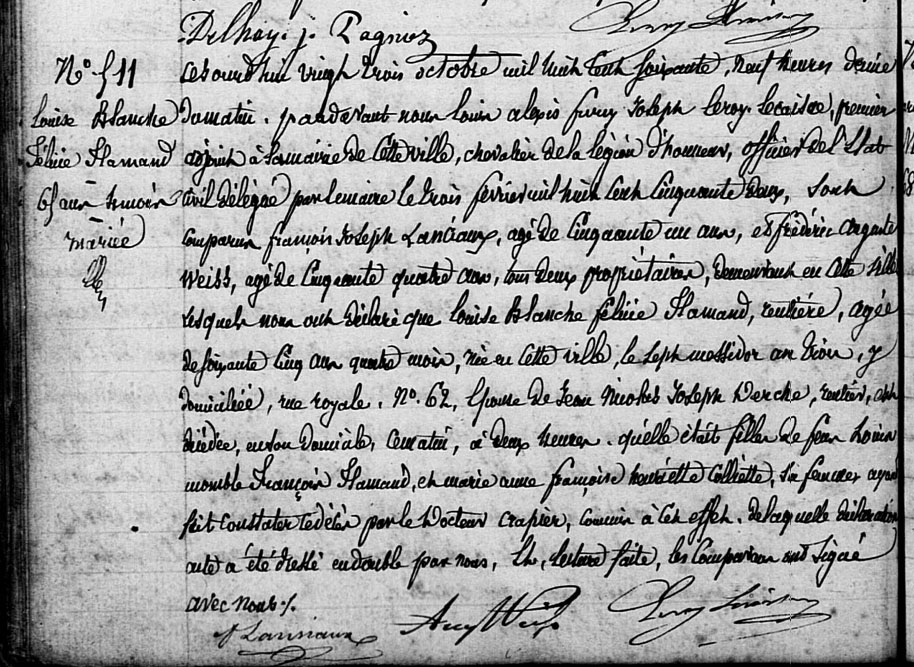 Delhaye j. Pagniez
N° 511
Louise Blanche
Félicie Flamand
65 ans 4 mois
mariée
Cejourd'hui vingt trois octobre mil huit cent soixante, neuf heures demie
du matin, pardevant nous Louis alexis fursy Joseph Leroy, premier
adjoint à la mairie de Cette ville, chevalier de la légion d'honneur, officier de l'Etat
civil délégué par le maire le trois février mil huit cent Cinquante deux, sont
comparus françois Joseph Lanciaux, agé de Cinquante un ans, et frédéric auguste
Weiss, agé de Cinquante quatre ans, tous deux propriétaires, demeurant en Cette ville
Lesquels nous ont déclaré que Louise Blanche félicie Flamand, rentière, agée
de soixante Cinq ans quatre mois, née en Cette ville, le sept messidor an trois, y
domiciliée, rue royale, N°. 62, épouse de Jean Nicolas Joseph Derche, rentier, est
décédée, en son domicile, ce matin, à deux heures. qu'elle était fille de feu Louis
François Flamand, et marie anne françoise henriette Colliette, sa femme, ayant
fait constater ce décès par le Docteur Crapier, commis à cet effet. de laquelle déclaration
acte a été dressé en double par nous, Et, lecture faite, les Comparans ont signé
avec nous ./.
f Lansiaux Aug Weiss